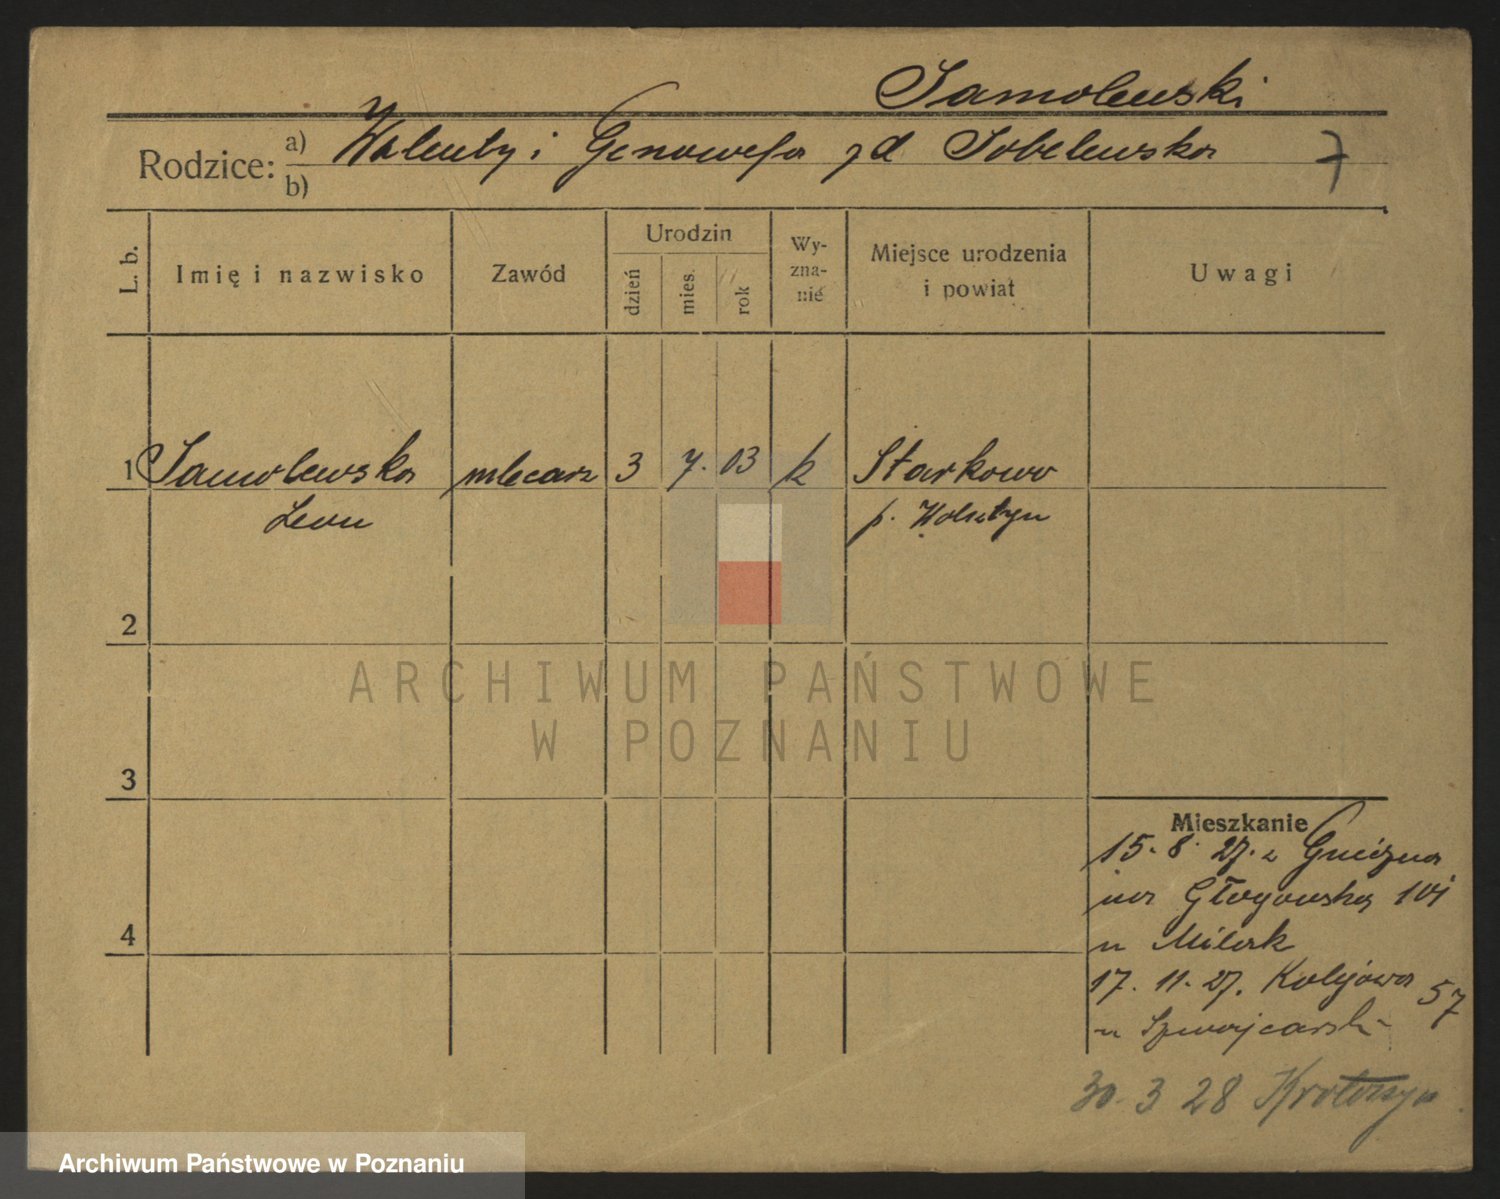 Samolewski
Rodzice: a) Walenty i Genowefa zd Sobelewska 7
b)
L. b.
Imię i nazwisko
Zawód
Urodzin
dzień
mies.
rok
Wy-
zna-
nie
Miejsce urodzenia
i powiat
Uwagi
1 Samolewska mlecarz 3 7. 03 k Starkowo
Leon p. Wolsztyn
2
3
4
Mieszkanie
15. 8. 27. z Gniezna
na Głogowską 101
u Milerk
17. 11. 27. Kolejowa 57
u Szwajcarsk
30. 3 28 Krotoszyn
ARCHIWUM PAŃSTWOWE
W POZNANIU
Archiwum Państwowe w Poznaniu